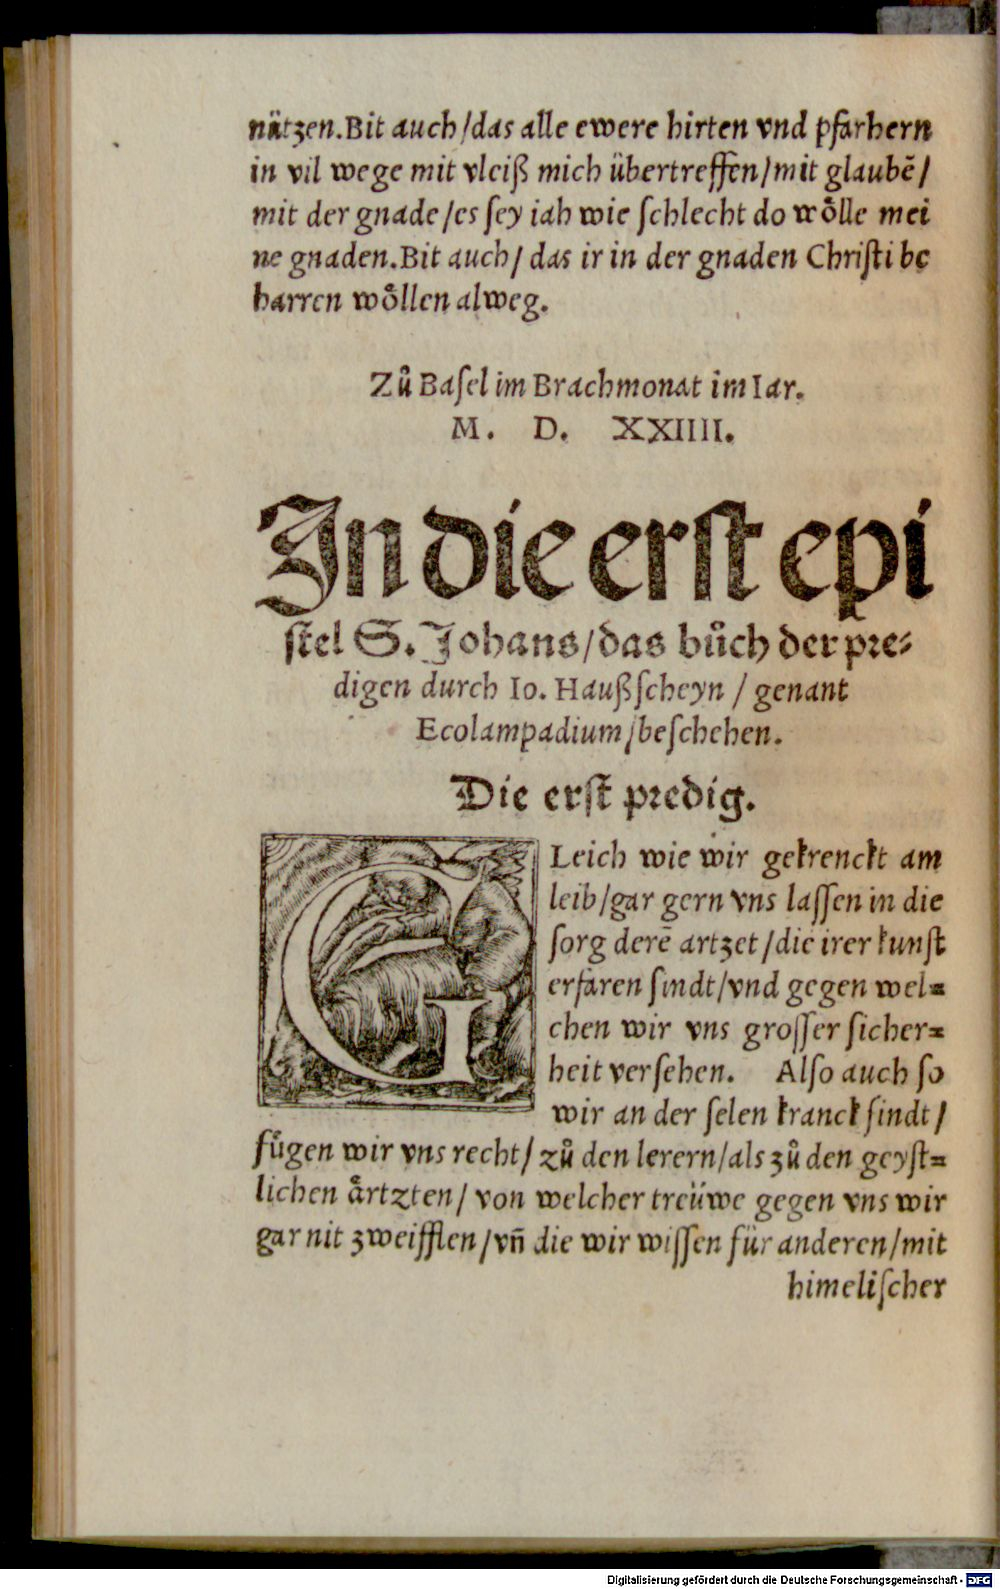 nätzen.Bit auch/das alle ewere hirten vnd pfarhern
in vil wege mit vleiß mich übertreffen/mit glaubē/
mit der gnade/es ſey iah wie ſchlecht do woͤlle mei
ne gnaden.Bit auch/ das ir in der gnaden Chriſti be
harren woͤllen alweg.
Zů Baſel im Brachmonat im Iar.
M. D. XXIIII.
In die erſt epi
ſtel S. Johans/das bůch der pre⸗
digen durch Io. Haußſcheyn / genant
Ecolampadium/beſchehen.
Die erſt predig.
GLeich wie wir gekrenckt am
leib/gar gern vns laſſen in die
ſorg derē artzet/die irer kunſt
erfaren ſindt/vnd gegen wel⸗
chen wir vns groſſer ſicher⸗
heit verſehen. Alſo auch ſo
wir an der ſelen kranck ſindt/
fuͤgen wir vns recht/ zů den lerern/als zů den geyſt⸗
lichen aͤrtzten/ von welcher treüwe gegen vns wir
gar nit zweifflen/vñ die wir wiſſen für anderen/mit
himeliſcher
Digitalisierung gefördert durch die Deutsche Forschungsgemeinschaft - DFG